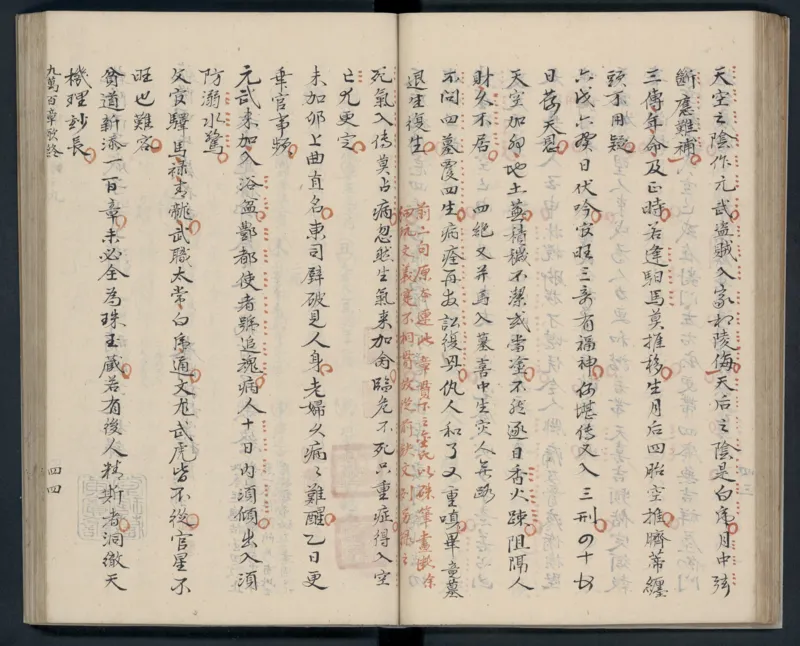 天空之陰作元武盜賊入家相陵侮天后之陰是白虎月中弦
斷應難補
三傳年命及正時若逢馹馬莫推移生月后四胎空推臍蒂纏
頭不用疑
六戊六癸日伏吟官旺三奇有福神何堪傳又入三刑四十
日蒙天恩
天空加卯地土蓋積穢不潔或當塗不然逐日香火踈阻隔人
財久不居
四絕又并馬入墓喜中生灾人無路
不問四墓覆四生病痊再發訟復興仇人和了又重嗔畢竟墓
退生復生
前二句原本連此章
死氣入傳莫占病忽然生氣來加命臨危不死只重症得入空
亡尤更定
未加卯上曲直名東司劈破見人身老婦久病之難醒乙日更
垂官事頻
元武來加入浴盆酆都使者號追魂病人十日內須傾出入須
防溺水驚
父官驛馬祿青龍武職太常白虎通文龙武虎皆不從官星不
旺也難容
貧道新添一百章未必全為珠玉藏若有後人精斯者洞徹天
機理玅長
九萬百章歌終
四四